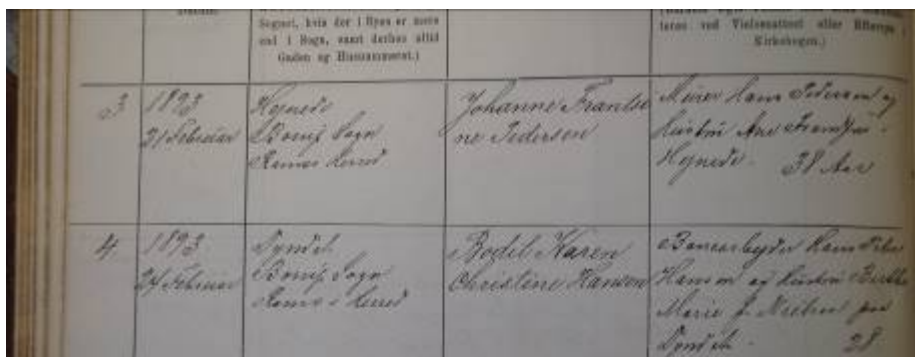 Sognet, hvis der i Byen er mere
end 1 Sogn, samt derhos altid
Gaden og Husnummeret.)
teren ved Vielsesattest eller Eftersyn i
Kirkebogen.)
3
1893
21 Februar
Hynede
Sogn
Herred
Johanne Frantsi
ne Pedersen
Murer Hans Pedersen og
Hustru Ane
Hynede. 38 Aar
4
1893
24 Februar
Dyndet
Sogn
Herred
Bodil Karen
Christine Hansen
Banearbejder Hans Peter
Hansen og Hustru Birthe
Marie f. Nielsen paa
Dyndet. 28